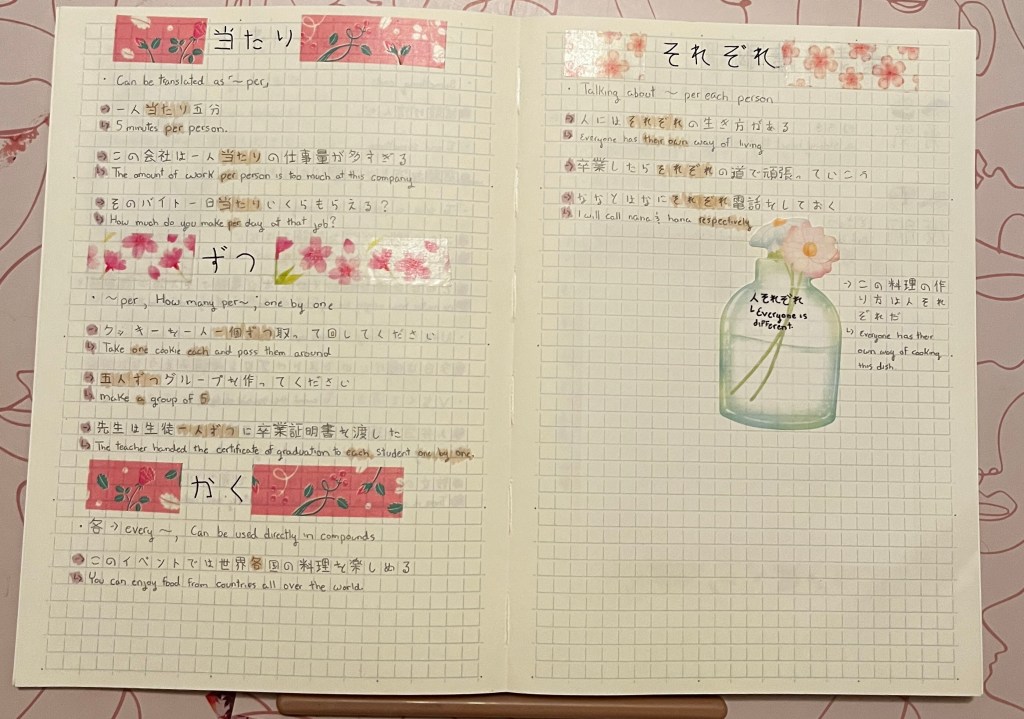 当たり
・ Can be translated as 「~ per」
→ 一人当たり五分
↳ 5 minutes per person.
→ この会社は一人当たりの仕事量が多すぎる
↳ The amount of work per person is too much at this company
→ そのバイト一日当たりいくらもらえる?
↳ How much do you make per day at that job?
ずつ
・ ~per, How many per~; one by one
→ クッキーを一人一個ずつ取って回してください
↳ Take one cookie each and pass them around
→ 五人ずつグループを作ってください
↳ make a group of 5
→ 先生は生徒一人ずつに卒業証明書を渡した
↳ The teacher handed the certificate of graduation to each student one by one.
かく
・ 各 → every ~, Can be used directly in compounds
→ このイベントでは世界各国の料理を楽しめる
↳ You can enjoy food from countries all over the world
それぞれ
・ Talking about ~ per each person
→ 人にはそれぞれの生き方がある
↳ Everyone has their own way of living
→ 卒業したらそれぞれの道で頑張っていこう
→ ななとはなにそれぞれ電話をしておく
↳ I will call nana & hana respectively
人それぞれ
↳ Everyone is
different.
→ この料理の作
り方は人それ
ぞれだ
↳ Everyone has their
own way of cooking
this dish.